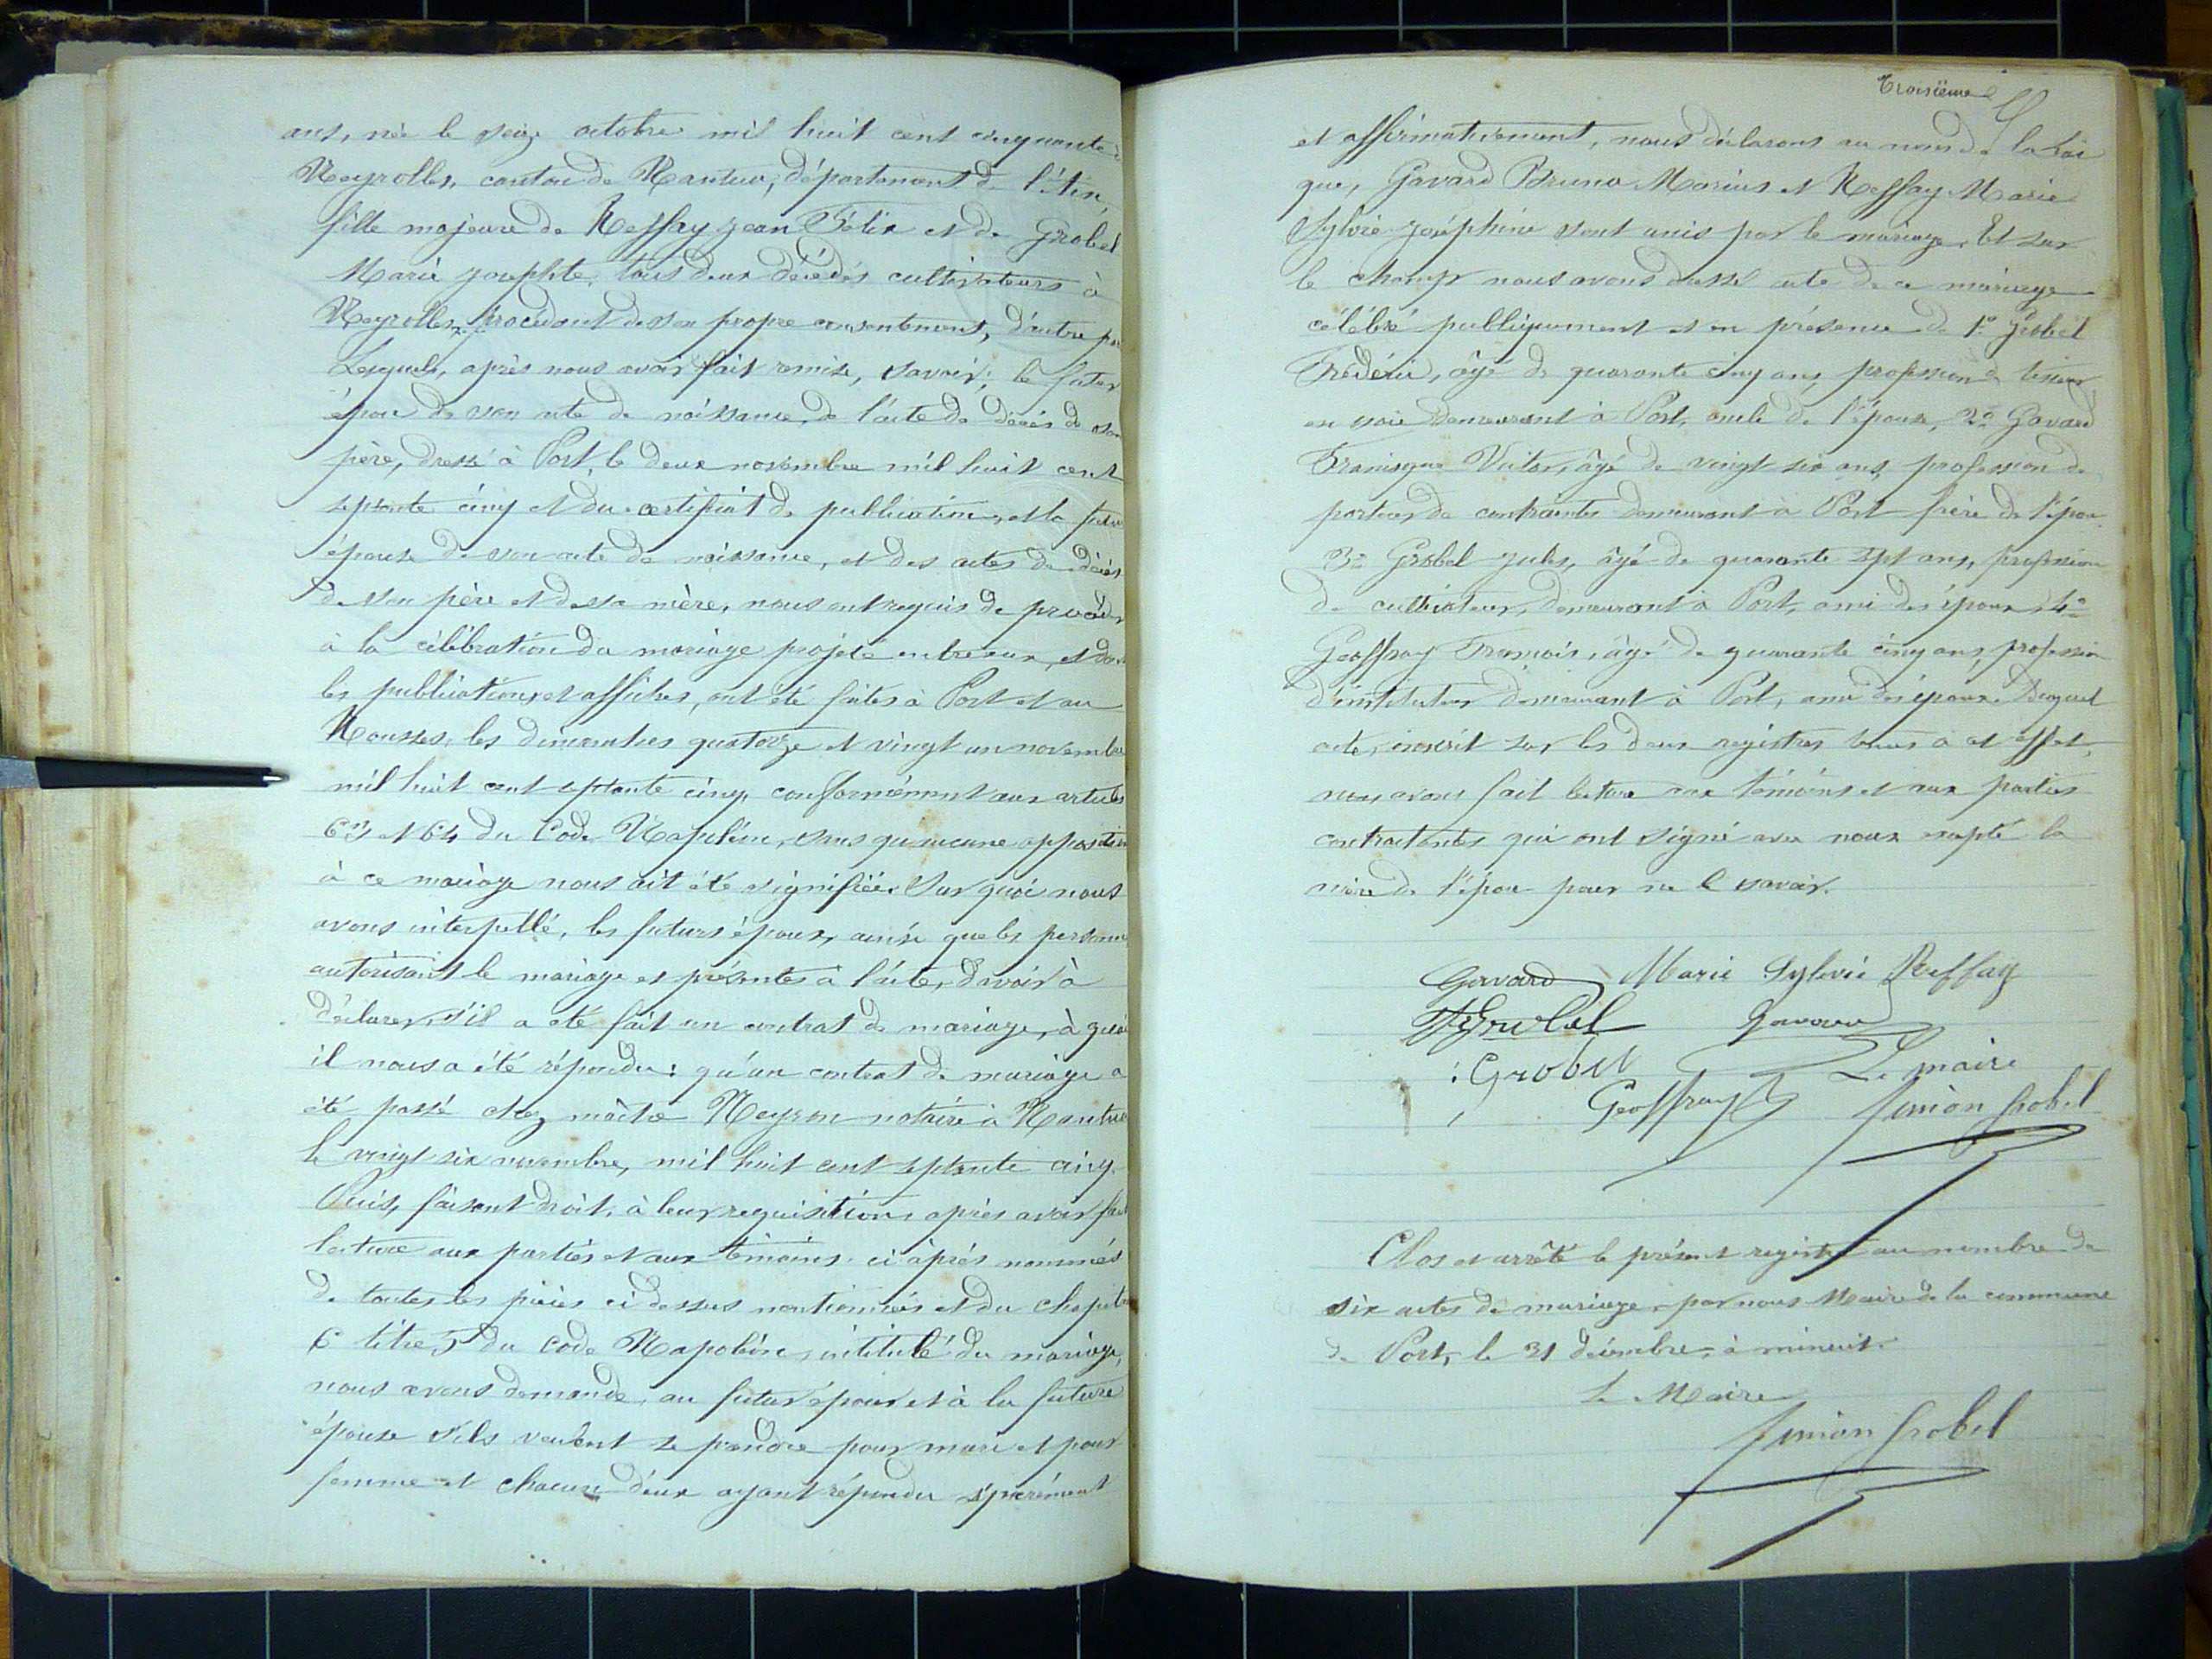 ans, née le seize octobre mil huit cent cinquante à
Neyrolles, canton de Nantua, département de l'Ain,
fille majeure de Reffay Jean Félix et de Grobel
Marie Josephte, tous deux décédés cultivateurs à
Neyrolles, procédant de son propre consentement, d'autre par
Lesquels, après nous avoir fait remise, savoir; le futur
époux de son acte de naissance, de l'acte de décès de son
père, dressé à Port, le deux novembre mil huit cent
septante cinq et du certificat de publication, et la future
épouse de son acte de naissance, et des actes de décès
de son père et de sa mère, nous ont requis de procéder
à la célébration du mariage projeté entre eux, et dont
les publications et affiches, ont été faites à Port et au
les dimanches quatorze et vingt un novembre
mil huit cent septante cinq, conformément aux articles
63 et 64 du Code Napoléon, sans qu'aucune opposition
à ce mariage nous ait été signifiée. Sur quoi nous
avons interpellé, les futurs époux, ainsi que les personnes
autorisant le mariage et présentes à l'acte, d'avoir à
déclarer, s'il a été fait un contrat de mariage, à quoi
il nous a été répondu: qu'un contrat de mariage a
été passé chez maître Neyron notaire à Nantua
le vingt six novembre, mil huit cent septante cinq.
Puis, faisant droit, à leur requisition, après avoir fait
lecture aux parties et aux témoins ci après nommés
de toutes les pièces ci dessus mentionnées et du chapitre
6 titre 5 du code Napoléon, intitulé du mariage,
nous avons demandé, au futur époux et à la future
épouse s'ils veulent se prendre pour mari et pour
femme et chacun d'eux ayant répondu séparément
Troisième
et affirmativement, nous déclarons au nom de la Loi
que, Gavard Bruno Marius et Reffay Marie
Sylvie Joséphine sont unis par le mariage. Et sur
le champ nous avons dressé acte de ce mariage
célébré publiquement et en présence de 1° Grobel
Frédéric, âgé de quarante cinq ans, profession de tisseur
en soie demeurant à Port, oncle de l'épouse, 2° Gavard
Francisque Victor, âgé de vingt six ans, profession de
porteur de contraintes demeurant à Port frère de l'époux
3° Grobel Jules, âgé de quarante sept ans, profession
de cultivateur, demeurant à Port, ami des époux, 4°
Geoffray François, âgé de quarante cinq ans, profession
d'instituteur demeurant à Port, ami des époux. Duquel
acte, inscrit sur les deux registres tenus à cet effet,
nous avons fait lecture aux témoins et aux parties
contractantes qui ont signé avec nous excepté la
mère de l'époux pour ne le savoir.
Gavard Marie Sylvie Reffay
F Grobel Gavard
Grobel Le maire
Geoffray Simion Grobel
Clos et arrêté le présent registre au nombre de
six actes de mariage, par nous Maire de la commune
de Port, le 31 décembre, à minuit.
Le Maire
Simion Grobel